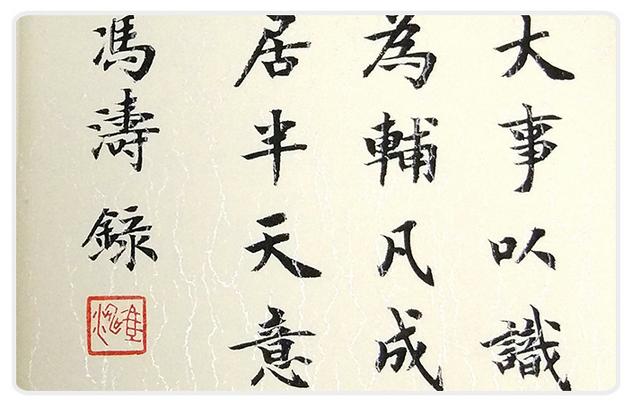 大事以識
為輔凡成
居半天意
馮濤錄